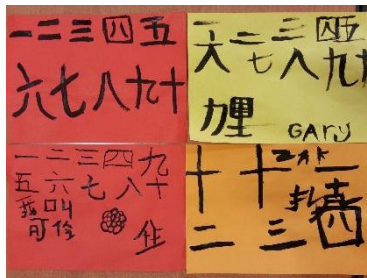 一二三四五
六七八九十
一二三四五
六七八九十
力里
GARY
一二三四九
五六七八十
我叫
可伶
十十一
二三四